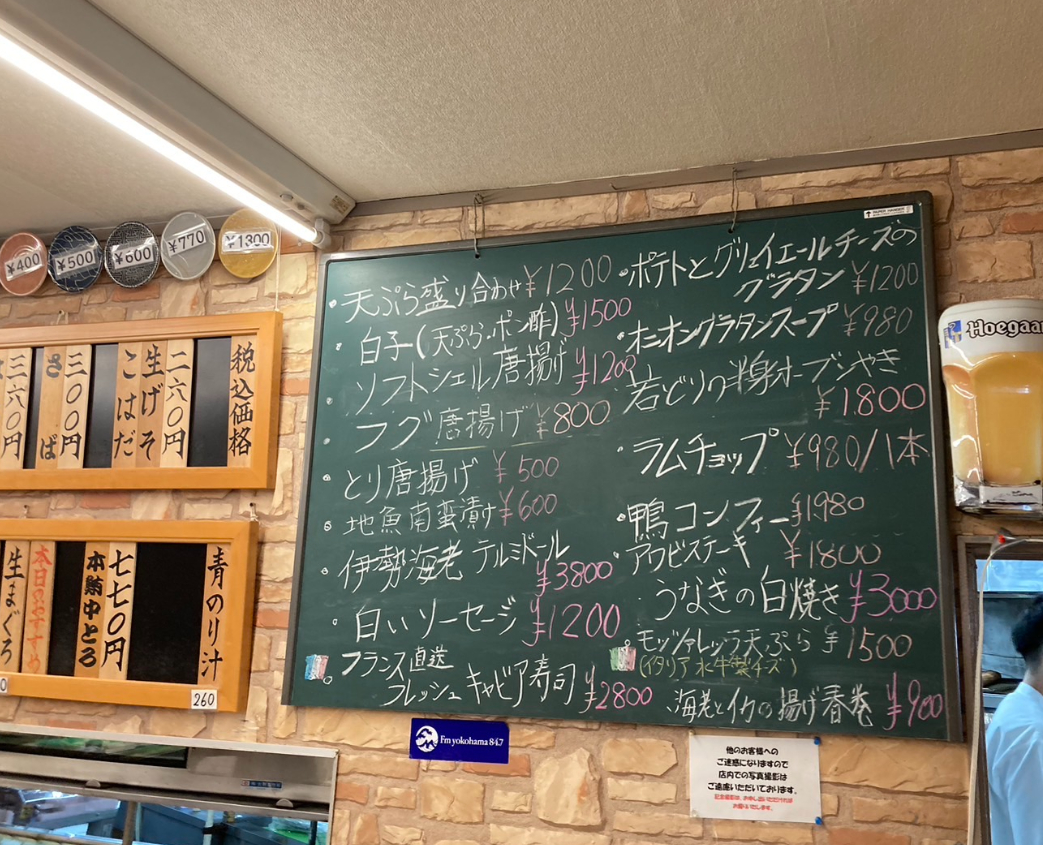 ¥400
¥500
¥600
¥770
¥1300
税込価格
二六〇円
生げそ
こはだ
三〇〇円
さば
三六〇円
青のり汁
260
七七〇円
本鮪中とろ
本日のおすすめ
生まぐろ
天ぷら盛り合わせ ¥1200
白子(天ぷら・ポン酢) ¥1500
ソフトシェル唐揚げ ¥1200
フグ唐揚げ ¥800
とり唐揚げ ¥500
地魚南蛮漬け ¥600
伊勢海老テルミドール
¥3800
白いソーセージ ¥1200
フランス直送
フレッシュキャビア寿司 ¥2800
ポテトとグリュイエールチーズの
グラタン ¥1200
オニオングラタンスープ ¥980
若どりの半身オーブンやき
¥1.800
ラムチョップ ¥980/1本
鴨コンフィー ¥1980
アワビステーキ ¥1800
うなぎの白焼き ¥3000
モッツァレッラ天ぷら ¥1500
(イタリア水牛製チーズ)
海老とイカの揚げ春巻 ¥900
Hoegaar
Fm yokohama 84.7
他のお客様への
ご迷惑になりますので
店内での写真撮影は
ご遠慮いただいております。